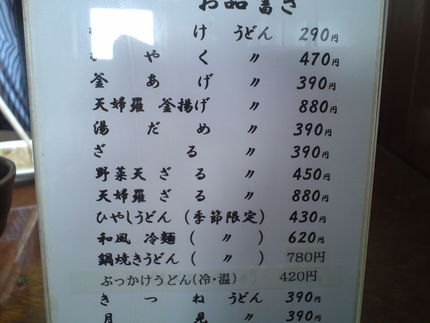 お品書き
け うどん 290円
ひやく 〃 470円
釜あげ 〃 390円
天婦羅 釜揚げ 〃 880円
湯だめ 〃 390円
ざる 〃 390円
野菜天 ざる 〃 450円
天婦羅 ざる 〃 880円
ひやしうどん (季節限定) 430円
和風 冷麺 ( 〃 ) 620円
鍋焼きうどん( 〃 ) 780円
ぶっかけうどん(冷・温) 420円
きつねうどん 390円
月見 〃 390円